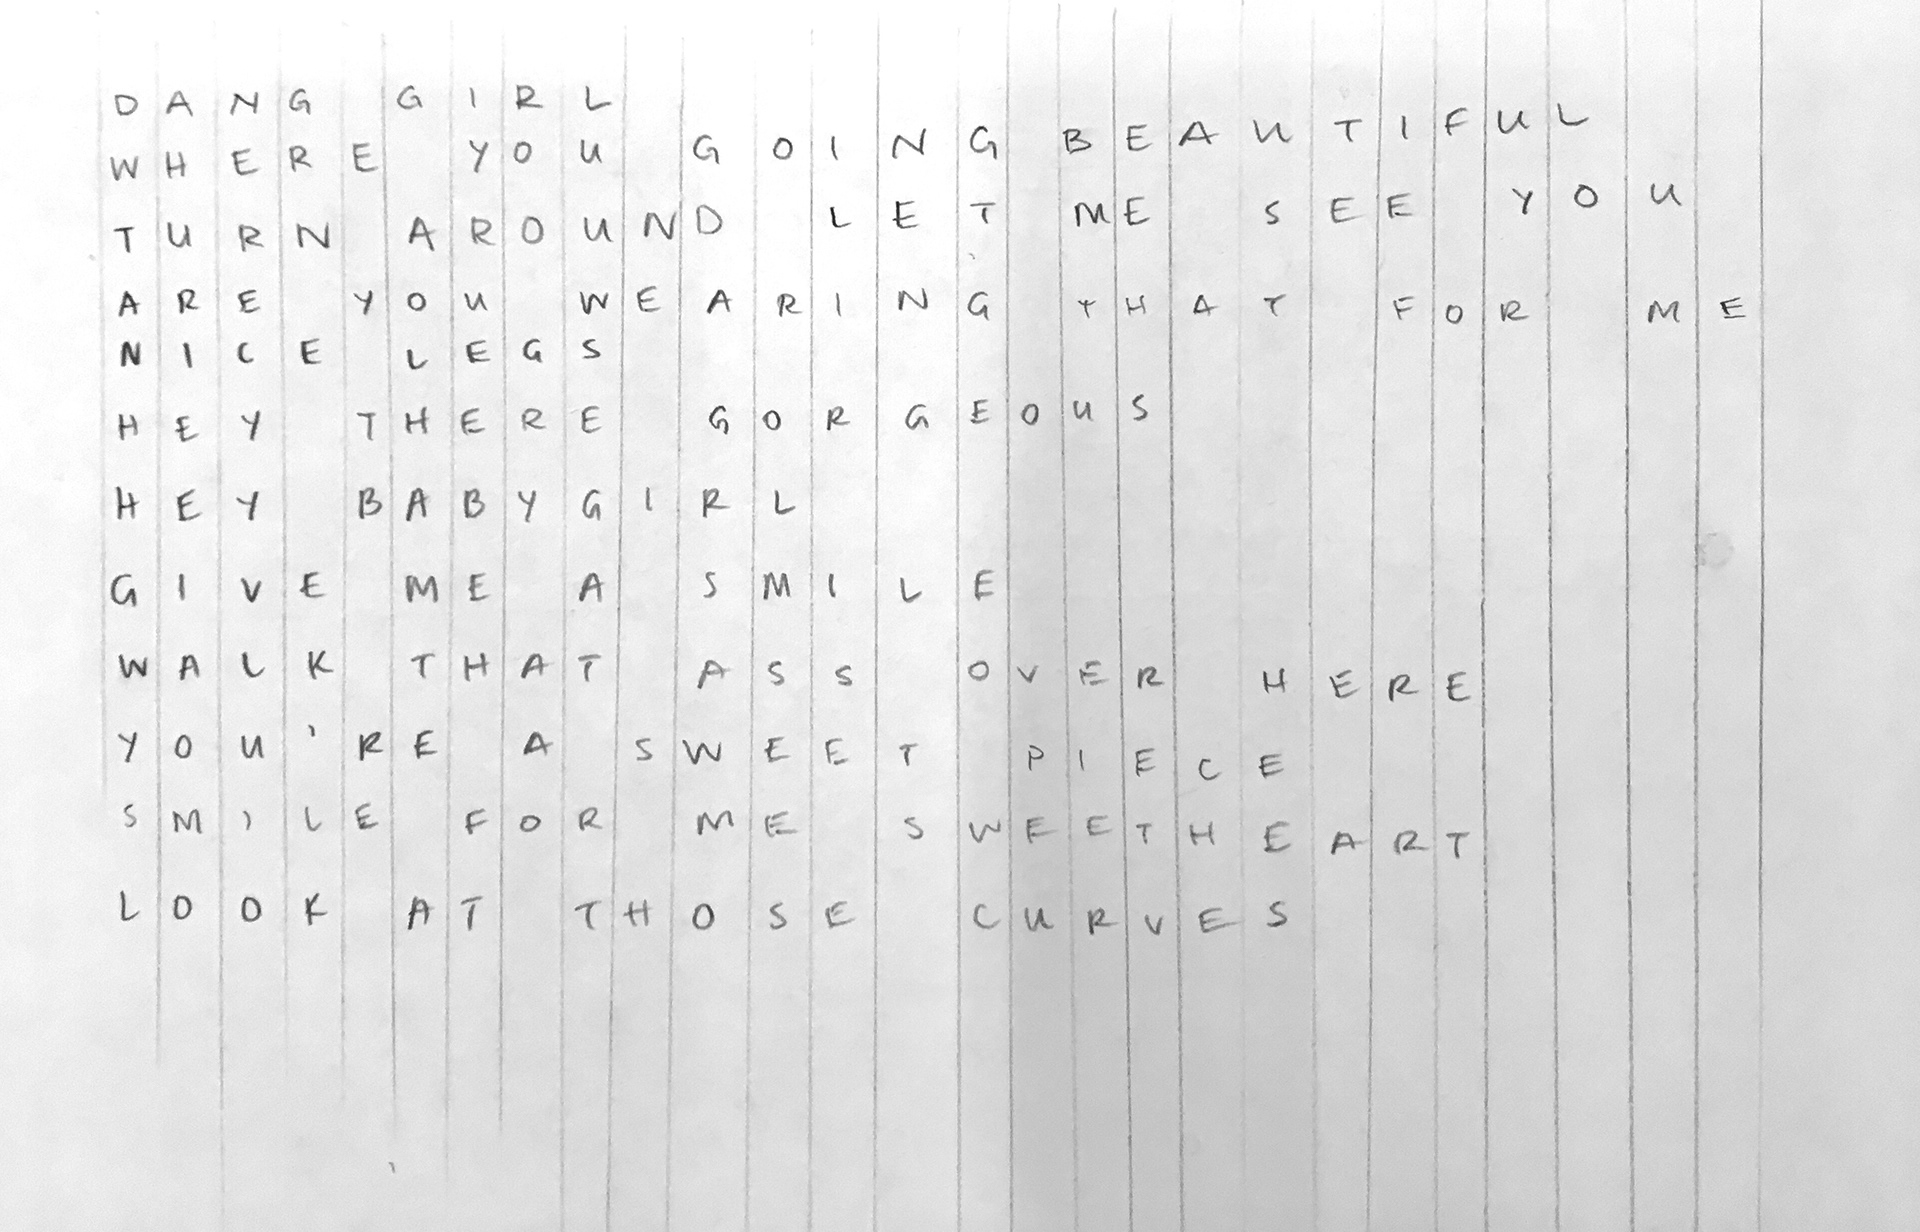 DANG GIRL
WHERE YOU GOING BEAUTIFUL
TURN AROUND LET ME SEE YOU
ARE YOU WEARING THAT FOR ME
NICE LEGS
HEY THERE GORGEOUS
HEY BABYGIRL
GIVE ME A SMILE
WALK THAT ASS OVER HERE
YOU'RE A SWEET PIECE
SMILE FOR ME SWEETHEART
LOOK AT THOSE CURVES